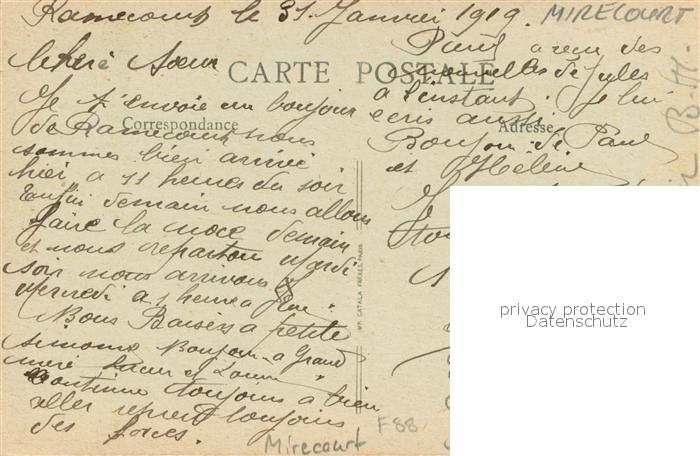 Ramecourt le 31 Janvier 1919. MIRECOURT
CARTE POSTALE
Correspondance
Adresse
Chere Sœur
Je t'envoie un bonjour
de Ramecourt nous
sommes bien arrivé
hier a 11 heures du soir
Enfin demain nous allons
faire la noce demain
et nous reparton Mardi
soir nous arrivons
Mercredi a 1 heure a
Bons Baisers a petite
Simone Bonjour a Grand
mere
continue toujours a bien
aller reprend toujours
des forces.
Paul a reçu des
nouvelles de Jules
a l'instant. Je lui
ecris aussi
Bonjour de Paul
et Hélène
IMP. CATALA FRERES, PARIS
privacy protection
Datenschutz
F88
Mirecourt